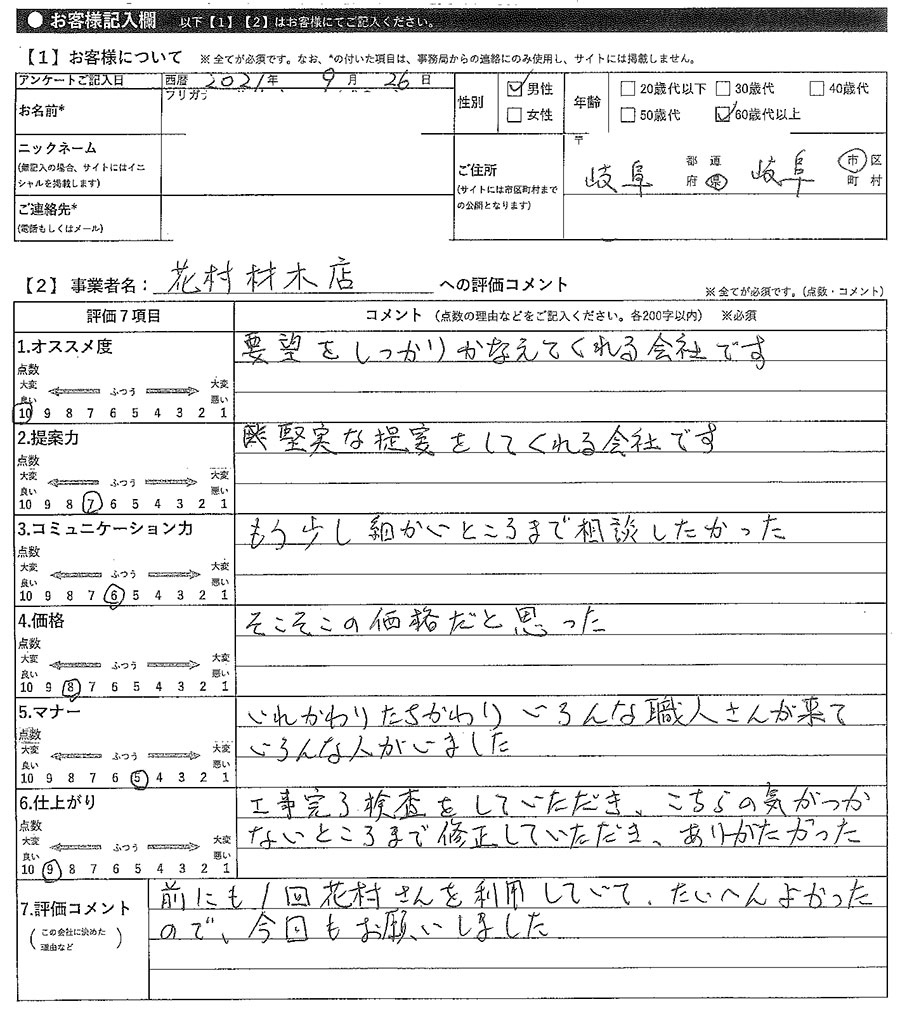 ● お客様記入欄 以下【1】【2】はお客様にてご記入ください。
【1】お客様について ※全てが必須です。なお、*の付いた項目は、事務局からの連絡にのみ使用し、サイトには掲載しません。
アンケートご記入日 西暦 2021年 9月 26日
お名前*
フリガナ
性別 ☑男性 □女性
年齢 □20歳代以下 □30歳代 □40歳代
□50歳代 ☑60歳代以上
ニックネーム
(無記入の場合、サイトにはイニ
シャルを掲載します)
ご連絡先*
(電話もしくはメール)
ご住所
(サイトには市区町村まで
の公開となります)
〒
岐阜 都道府県 岐阜 市区町村
【2】事業者名： 花村材木店 への評価コメント
※全てが必須です。(点数・コメント)
評価7項目
コメント (点数の理由などをご記入ください。各200字以内) ※必須
1.オススメ度
点数
大変良い ふつう 大変悪い
10 9 8 7 6 5 4 3 2 1
要望をしっかりかなえてくれる会社です
2.提案力
点数
大変良い ふつう 大変悪い
10 9 8 7 6 5 4 3 2 1
堅実な提案をしてくれる会社です
3.コミュニケーション力
点数
大変良い ふつう 大変悪い
10 9 8 7 6 5 4 3 2 1
もう少し細かいところまで相談したかった
4.価格
点数
大変良い ふつう 大変悪い
10 9 8 7 6 5 4 3 2 1
そこそこの価格だと思った
5.マナー
点数
大変良い ふつう 大変悪い
10 9 8 7 6 5 4 3 2 1
いれかわりたちかわり いろんな職人さんが来て
いろんな人がいました
6.仕上がり
点数
大変良い ふつう 大変悪い
10 9 8 7 6 5 4 3 2 1
工事完了検査をしていただき、こちらの気がつか
ないところまで修正していただき、ありがたかった
7.評価コメント
(この会社に決めた
理由など)
前にも1回花村さんを利用していて、たいへんよかった
ので、今回もお願いしました